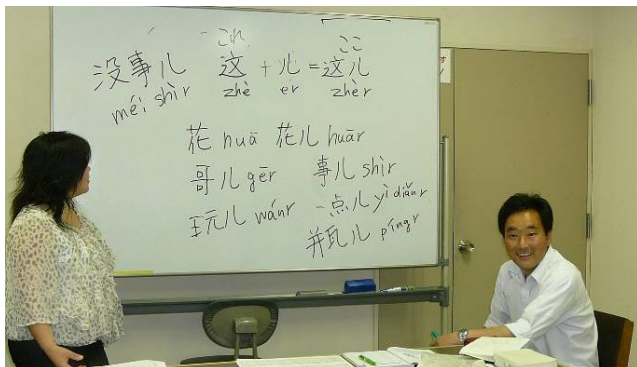 これ ここ
没事儿 这 + 儿 = 这儿
méi shìr zhè er zhèr
花 huā 花儿 huār
哥儿 gēr 事儿 shìr
玩儿 wánr 一点儿 yìdiǎnr
瓶儿 píngr